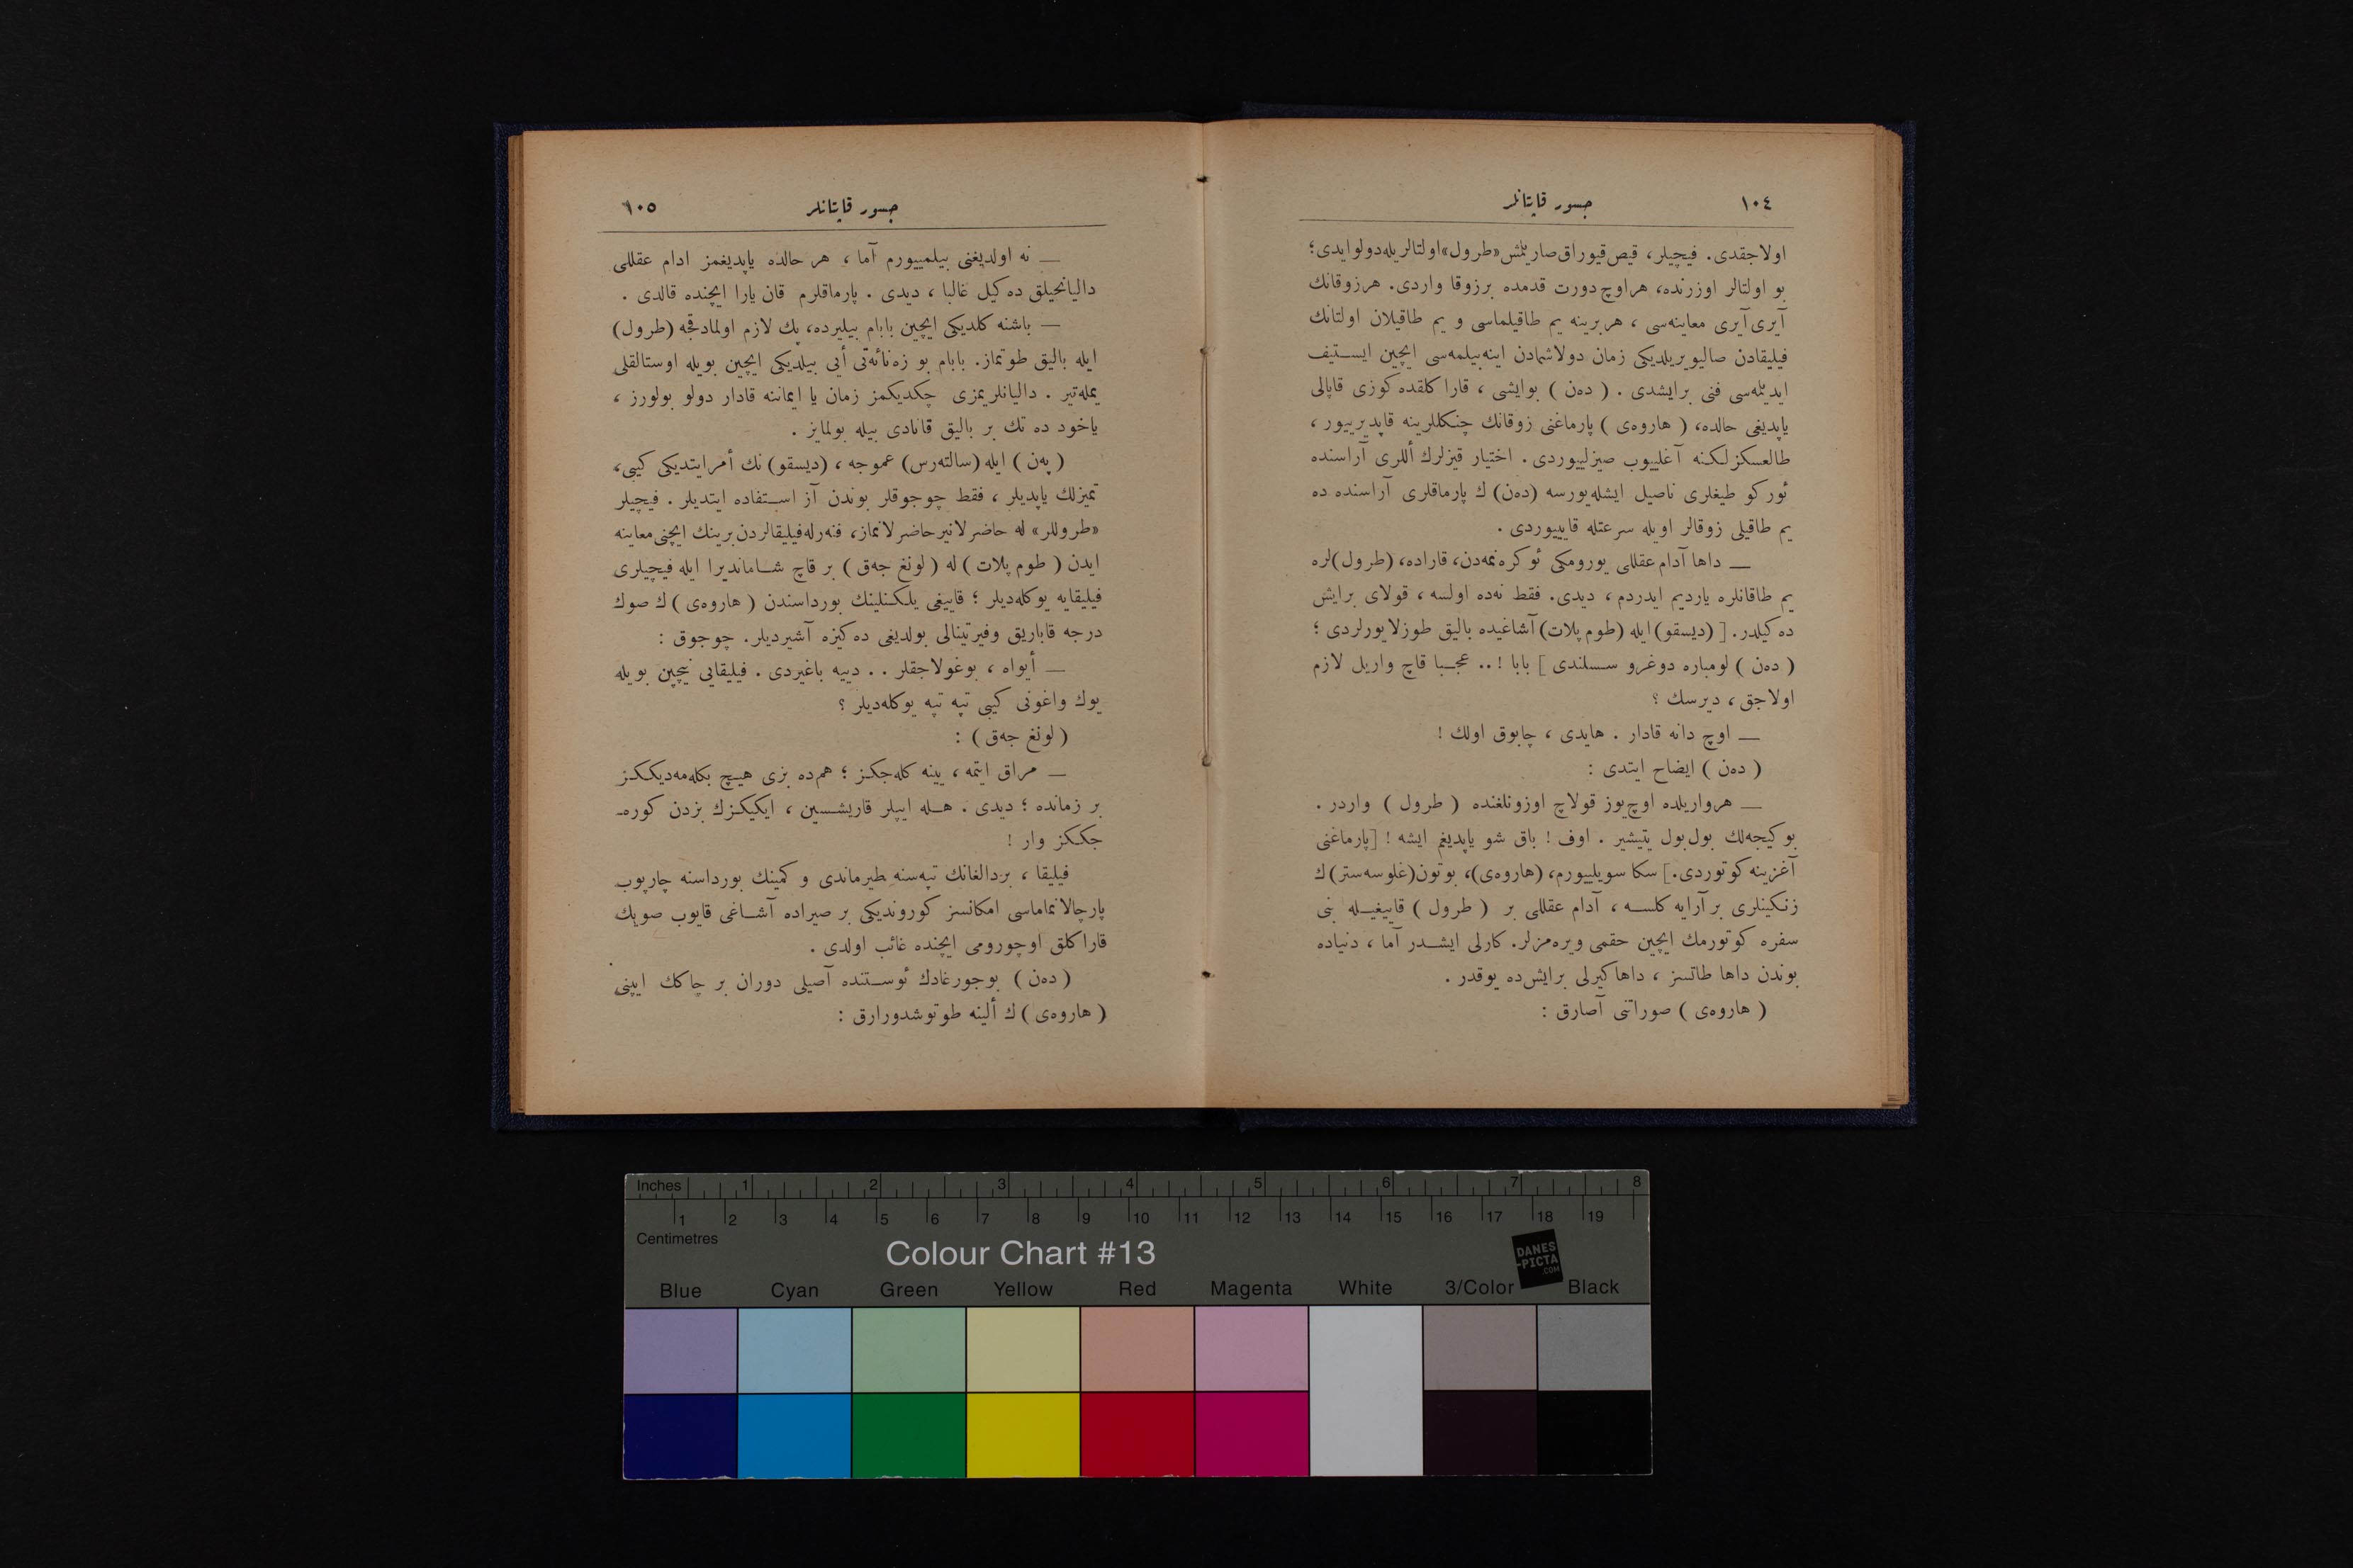 ١٠٤
جسور قاپتانلر
اولاجقدی. فیچیلر، قیص قیوراق صاریلمش «طرول» اولتالریله دولو ایدی؛
بو اولتالر اوزرنده، هر اوچ دورت قدمده بر زوقا واردی. هر زوقانك
آیری آیری معاینه‌سی ، هر برینه یم طاقیلماسی و یم طاقیلان اولتانك
فیلیقادن صالیویریلدیکی زمان دولاشمادن اینه‌بیلمه‌سی ایچین ایستیف
ایدیلمه‌سی فنی بر ایشدی . ( ده‌ن ) بو ایشی ، قارا کلقده کوزی قاپالی
یاپدیغی حالده، ( هاروه‌ی ) پارماغنی زوقانك چنکللرینه قاپدیرییور ،
طالعسکز لکنه آغلییوب صیزلییوردی . اختیار قیزلرك أللری آراسنده
ئورکو طیغلری ناصیل ایشله‌یورسه (ده‌ن) ك پارماقلری آراسنده ده
یم طاقیلی زوقالر اویله سرعتله قاییپوردی .
— داها آدام عقللی یورومکی ئوکره‌نمه‌دن، قاراده، (طرول)لره
یم طاقانلره یاردیم ایدردم ، دیدی. فقط نه‌ده اولسه ، قولای بر ایش
ده‌کیلدر. [ (دیسقو) ایله (طوم پلات) آشاغیده بالیق طوزلایورلردی ؛
( ده‌ن ) لومباره دوغرو سسلندی ] بابا !.. عجبا قاچ واریل لازم
اولاجق ، دیرسك ؟
— اوچ دانه قادار . هایدی ، چابوق اولك !
( ده‌ن ) ایضاح ایتدی :
— هر واریلده اوچ یوز قولاچ اوزونلغنده ( طرول ) واردر .
بو کیجه‌لك بول بول یتیشیر . اوف ! باق شو یاپدیغم ایشه ! [پارماغنی
آغزینه کوتوردی.] سکا سویلییورم، (هاروه‌ی)، بوتون (غلوسه‌ستر) ك
زنکینلری بر آرایه کلسه ، آدام عقللی بر ( طرول ) قاییغیله بنی
سفره کوتورمك ایچین حقمی ویره‌مزلر. کارلی ایشدر آما ، دنیاده
بوندن داها طاتسز ، داها کیرلی بر ایش ده یوقدر .
( هاروه‌ی ) صوراتنی آصارق :
جسور قاپتانلر
١٠٥
— نه اولدیغنی بیلمییورم آما ، هر حالده یاپدیغمز ادام عقللی
دالیانجیلق ده‌کیل غالبا ، دیدی . پارماقلرم قان یارا ایچنده قالدی .
— باشنه کلدیکی ایچین بابام بیلیرده، پك لازم اولمادقجه (طرول)
ایله بالیق طوتماز. بابام بو زه‌نائه‌تی أیی بیلدیکی ایچین بویله اوستالقلی
یمله‌تیر . دالیانلریمزی چکدیکمز زمان یا ایماننه قادار دولو بولورز ،
یاخود ده تك بر بالیق قانادی بیله بولمایز .
( په‌ن ) ایله (سالته‌رس) عموجه ، (دیسقو) نك أمر ایتدیکی کیبی،
تمیزلك یاپدیلر ، فقط چوجوقلر بوندن آز استفاده ایتدیلر . فیچیلر
«طروللر» له حاضرلانیر حاضرلانماز، فنه‌رله فیلیقالردن برینك ایچنی معاینه
ایدن ( طوم پلات ) له ( لونغ جه‌ق ) بر قاچ شاماندیرا ایله فیچیلری
فیلیقایه یوکله‌دیلر ؛ قاییغی یلکنلینك بورداسندن ( هاروه‌ی ) ك صوك
درجه قاباریق وفیرتینالی بولدیغی ده‌کیزه آشیردیلر. چوجوق :
— أیواه ، بوغولاجقلر . . دییه باغیردی . فیلیقایی نیچین بویله
یوك واغونی کیبی تپه تپه یوکله‌دیلر ؟
( لونغ جه‌ق ) :
— مراق ایتمه ، یینه کله‌جکز ؛ هم‌ده بزی هیچ بکله‌مه‌دیککز
بر زمانده ؛ دیدی . هله ایپلر قاریشسین ، ایکیکزك بزدن کوره‌ـ
جککز وار !
فیلیقا ، بر دالغانك تپه‌سنه طیرماندی و کمینك بورداسنه چارپوب
پارچالانماماسی امکانسز کوروندیکی بر صیراده آشاغی قایوب صویك
قاراکلق اوچورومی ایچنده غائب اولدی .
( ده‌ن ) بوجورغادك ئوستنده آصیلی دوران بر چاکك ایپنی
( هاروه‌ی ) ك ألینه طوتوشدورارق :
Inches 1 2 3 4 5 6 7 8
1 2 3 4 5 6 7 8 9 10 11 12 13 14 15 16 17 18 19
Centimetres
Colour Chart #13
DANES
-PICTA
.COM
Blue Cyan Green Yellow Red Magenta White 3/Color Black